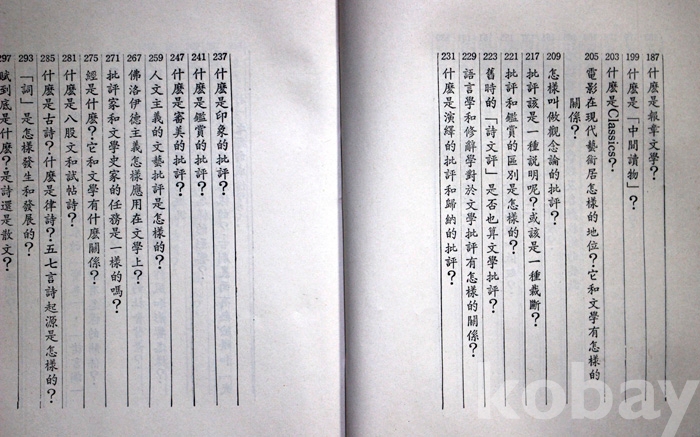 187 什麼是報章文學？
199 什麼是「中間讀物」？
203 什麼是Classics？
205 電影在現代藝術居怎樣的地位？它和文學有怎樣的
關係？
209 怎樣叫做觀念論的批評？
217 批評該是一種說明呢？或該是一種裁斷？
221 批評和鑑賞的區別是怎樣的？
223 舊時的「詩文評」是否也算文學批評？
229 語言學和修辭學對於文學批評有怎樣的關係？
231 什麼是演繹的批評和歸納的批評？
237 什麼是印象的批評？
241 什麼是鑑賞的批評？
247 什麼是審美的批評？
259 人文主義的文藝批評是怎樣的？
267 佛洛伊德主義怎樣應用在文學上？
271 批評家和文學史家的任務是一樣的嗎？
275 經是什麼？它和文學有什麼關係？
281 什麼是八股文和試帖詩？
285 什麼是古詩？什麼是律詩？五七言詩起源是怎樣的？
293 「詞」是怎樣發生和發展的？
297 賦到底是什麼？是詩還是散文？
kobay